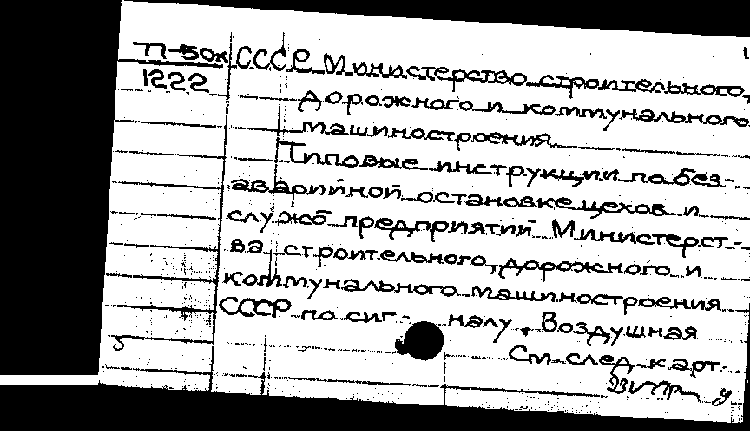 П-50к СССР Министерство строительного, 1
1222
дорожного и коммунального
машиностроения.
Типовые инструкции по без-
аварийной остановке цехов и
служб предприятий Министерст-
ва строительного, дорожного и
коммунального машиностроения
СССР по сиг- налу „Воздушная
См. след. карт.
5